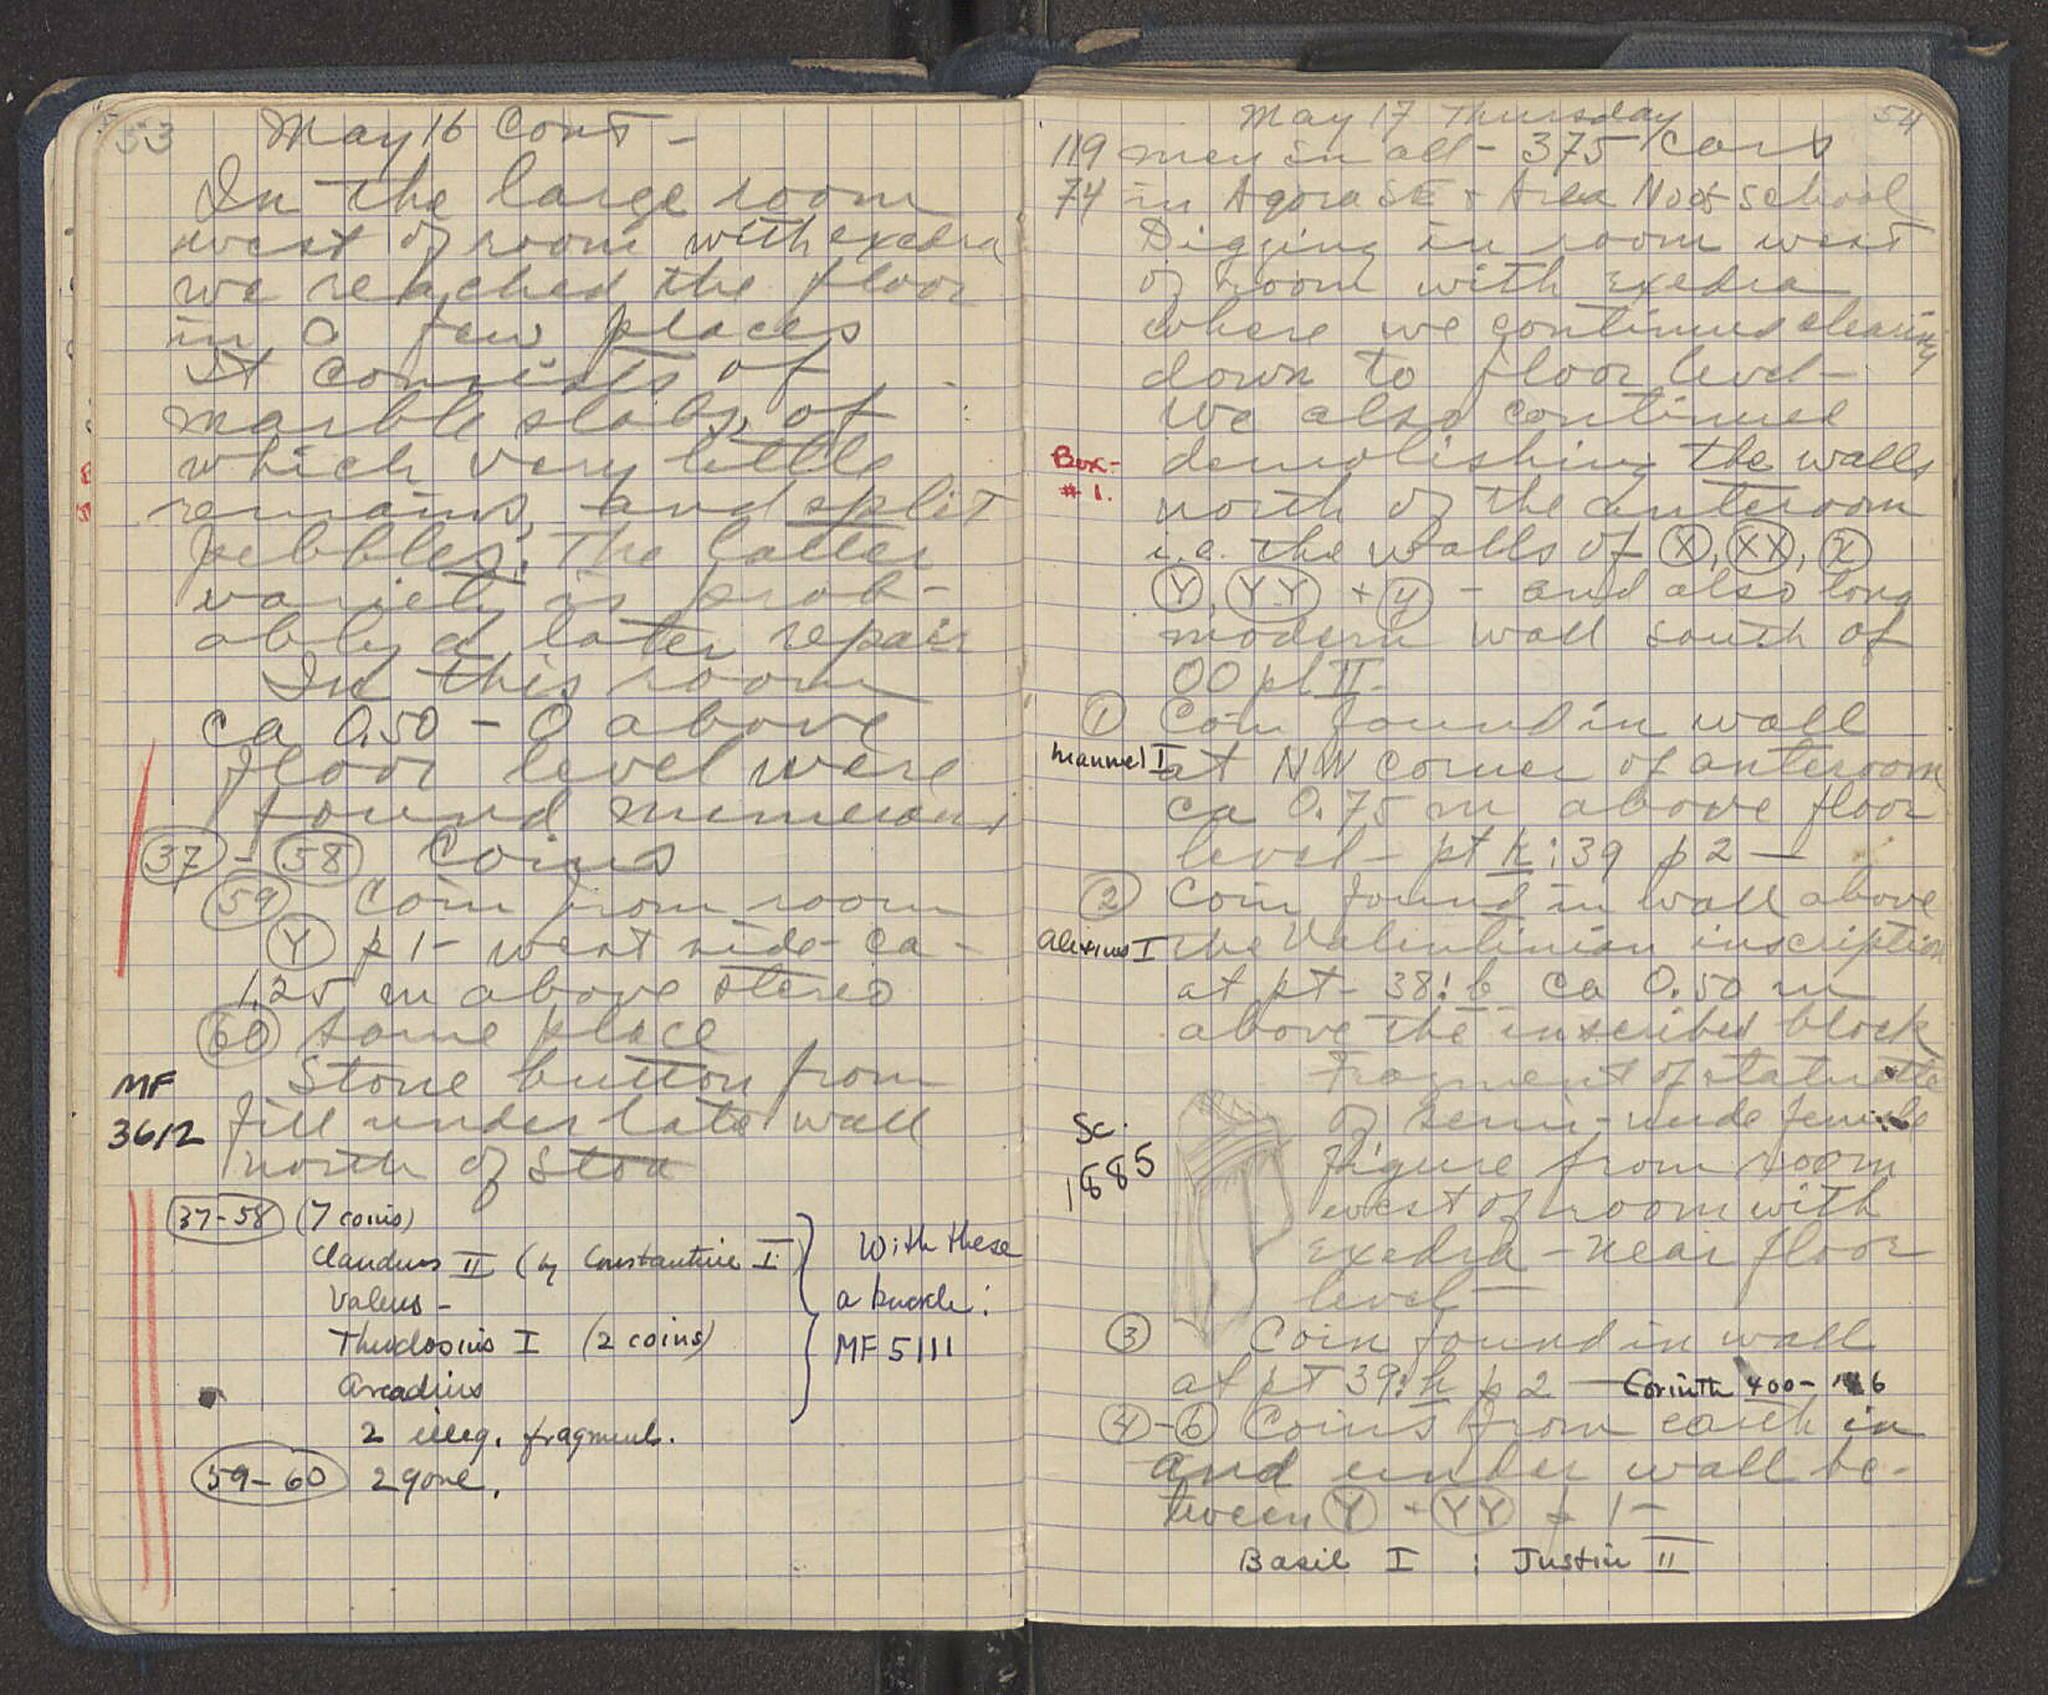 53
May 16 Cont -
In the large room
west of room with exedra
we reached the floor
in a few places
It consists of
marble slabs, of
which very little
remains, and split
pebbles. The latter
variety is prob-
ably a later repair
In this room
ca 0.50 - 0 above
floor level were
found numerous
37 - 58 coins
59 Coin from room
Y p 1 - west side - ca -
1.25 m above stereo
60 same place
Stone button from
MF
3612
fill under late wall
north of Stoa
37-58 (7 coins)
Claudius II (by Constantine I)
Valens -
Theodosius I (2 coins)
Arcadius
2 illeg. fragments.
With these
a buckle:
MF 5111
59-60 2 gone.
54
May 17 Thursday
119 men in all - 375 cars
74 in Agora SE + Area No of School
Digging in room west
of room with exedra
where we continued clearing
down to floor level -
We also continued
Box-
# 1.
demolishing the walls
north of the anteroom
i.e. the walls of X, XX, x
Y, YY + y - and also long
modern wall south of
OO pl II -
1 Coin found in wall
Manuel I
at NW corner of anteroom
ca 0.75 m above floor
level - pt k:39 p 2 -
2 Coin found in wall above
Alexius I
the Valentinian inscription
at pt - 38:b ca 0.50 m
above the inscribed block
Fragment of statuette
Sc.
1885
of semi-nude female
figure from room
west of room with
exedra - near floor
level -
3 Coin found in wall
at pt 39:k p 2 - Corinth 400-
4-6 Coins from earth in
and under wall be-
tween Y + YY p 1 -
Basil I : Justin II